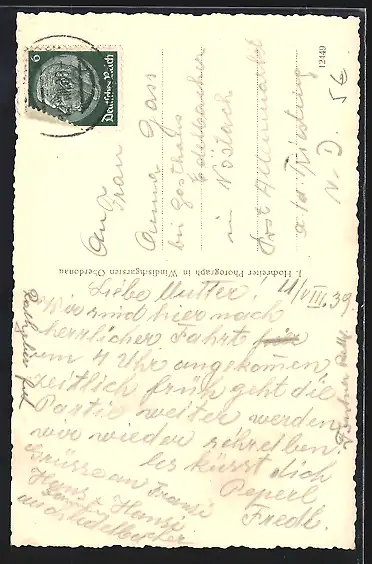 6
Deutsches Reich
12449
An
Frau
Anna Gass
bei Gasthaus
in Nöstach
Post Altenmarkt
a/d Triesting
N. D.
J. Hochreiter Photograph in Windischgarsten Oberdonau
Liebe Mutter! 4/VIII.39
Wir sind hier nach
herrlicher Fahrt
um 4 Uhr angekommen,
zeitlich früh geht die
Partie weiter werden
wir wieder schreiben.
Es küsst dich
Grüsse an Franzi Peperl
Hans & Hansi Fredl.